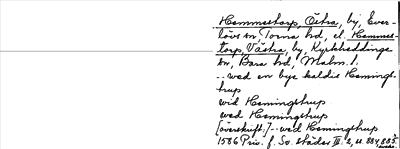 Hemmestorp, Östra, by, Ever-
lövs sn, Torna hd, el. Hemmes-
torp, Västra, by, Kyrkheddinge
sn, Bara hd, Malm. l.
..wed en bye kaldis Hemings-
trup
wid Hemingstrup
wed Hemingstrup
[överskuft:]--wed Hemingstrup
1586 Priv. f. Sv. städer III:2, s. 884, 885.